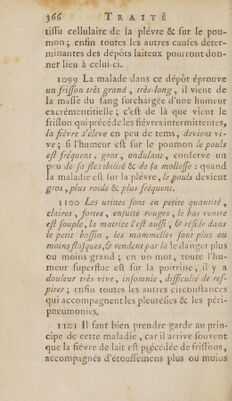 366 TRAITÉ
tissu cellulaire de la plévre & sur le pou-
mon ; enfin toutes les autres causes déter-
minantes des dépôts laiteux pourront don-
ner lieu à celui-ci.
1099 La malade dans ce dépôt éprouve
un frisson très grand , très-long , il vient de
la masse du sang surchargée d'une humeur
excrémentitielle ; c'est de là que vient le
frisson qui précéde les fiévres intermittentes,
la fiévre s'éleve en peu de tems, devient vi-
ve ; si l'humeur est sur le poumon le pouls
est fréquent , gros , ondulant , conserve un
peu de sa flexibilité & de sa mollesse : quand
la maladie est sur la plévre , le pouls devient
gros , plus roide & plus fréquent.
1100 Les urines sont en petite quantité ,
claires , fortes , ensuite rouges , le bas ventre
est souple , la matrice l'est aussi , & réside dans
le petit bassin , les mammelles sont plus ou
moins flasques, & rendent par là le danger plus
ou moins grand ; en un mot, toute l'hu-
meur superflue est sur la poitrine , il y a
douleur très vive , insomnie , difficulté de res-
pirer ; enfin toutes les autres circonstances
qui accompagnent les pleurésies & les péri-
pneumonies,
1101 Il faut bien prendre garde au prin-
cipe de cette maladie , car il arrive souvent
que la fiévre de lait est précédée de frissons ,
accompagnés d'étouffemens plus ou moins